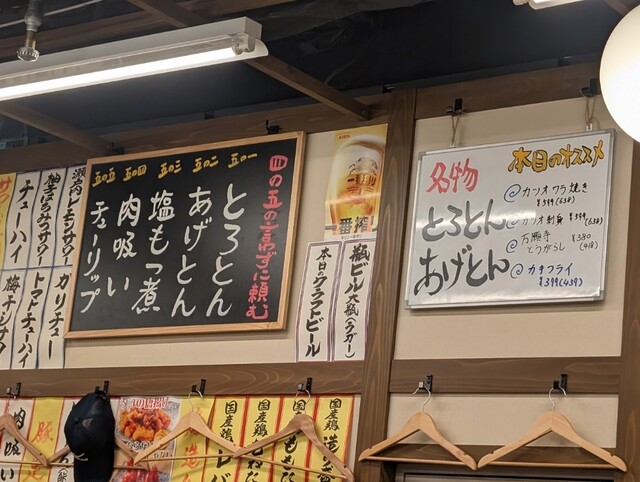 四の五の言ずに頼む
五の一 とろとん
五の二 あげとん
五の三 塩もつ煮
五の四 肉吸い
五の五 チューリップ
一番搾り
瓶ビール大瓶(ラガー)
本日のクラフトビール
名物
とろとん
あげとん
本日のオススメ
@カツオワラ焼き
¥599(658)
@カツオ刺身 ¥599(658)
@万願寺とうがらし ¥380(418)
@カキフライ
¥399(439)
瀬戸内レモンサワー
チューハイ
カリチュー
トマトチューハイ
肉吸い
豚
国産鶏
国産鶏
国産鶏
国産鶏